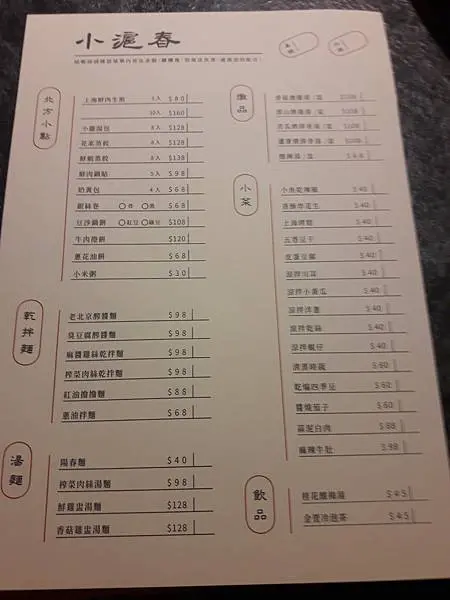 小滬春
北方小點
上海鮮肉生煎 5入 $80
10入 $160
小籠湯包 8入 $128
花素蒸餃 8入 $128
鮮蝦蒸餃 8入 $138
鮮肉鍋貼 5入 $98
奶黃包 4入 $68
銀絲卷 ○炸 ○蒸 $68
豆沙鍋餅 ○紅豆 ○綠豆 $108
牛肉捲餅 $120
蔥花油餅 $68
小米粥 $30
乾拌麵
老北京醡醬麵 $98
臭豆腐醡醬麵 $98
麻醬雞絲乾拌麵 $98
榨菜肉絲乾拌麵 $98
紅油擔擔麵 $88
蔥油拌麵 $68
湯麵
陽春麵 $40
榨菜肉絲湯麵 $98
鮮雞盅湯麵 $128
香菇雞盅湯麵 $128
燉品
小菜
小魚乾辣椒 $40
上海烤麩 $40
五香豆干 $40
皮蛋豆腐 $40
涼拌小黃瓜 $40
涼拌洋蔥 $40
涼拌乾絲 $40
乾煸四季豆 $60
醬燒茄子 $60
蒜泥白肉 $88
麻辣牛肚 $98
飲品
桂花酸梅湯 $45
金萱冷泡茶 $45